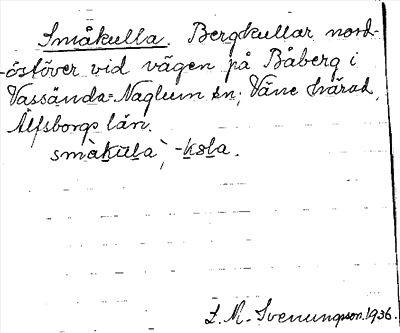 Småkulla. Bergkullar nord-
-östöver vid vägen på Båberg i
Vassända-Naglum sn; Väne härad,
Älfsborgs län.
småkula, -ksla.
L. M. Svenungsson. 1936.